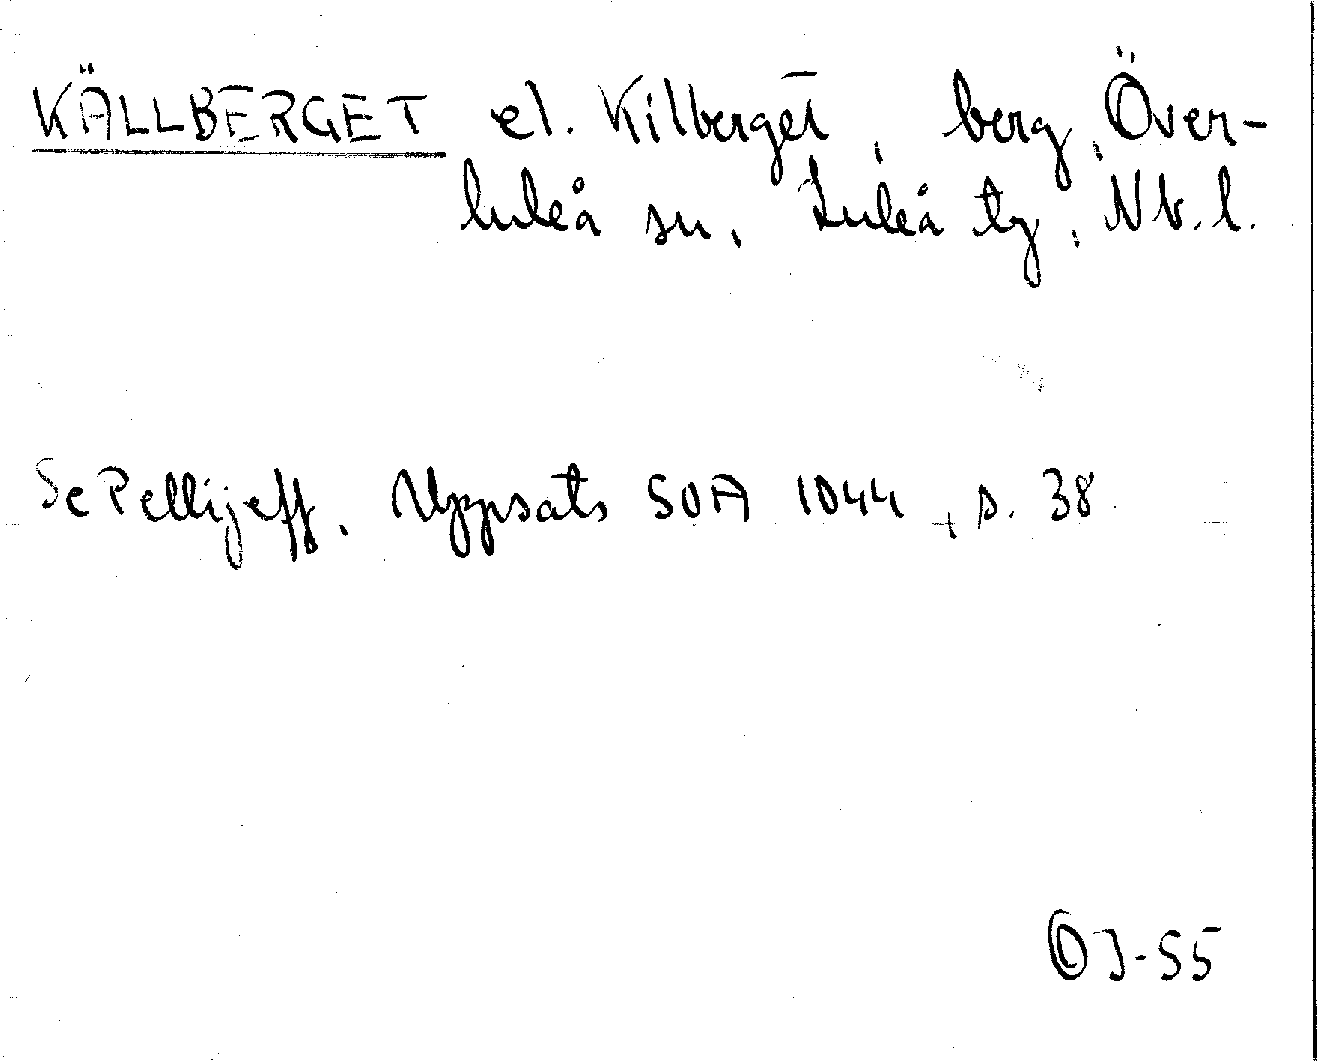 KÄLLBERGET el. Kilberget, berg, Över-
luleå sn, Luleå tg, Nb. l.
Se Pellijeff, Uppsats SOA 1044, s. 38
J-55